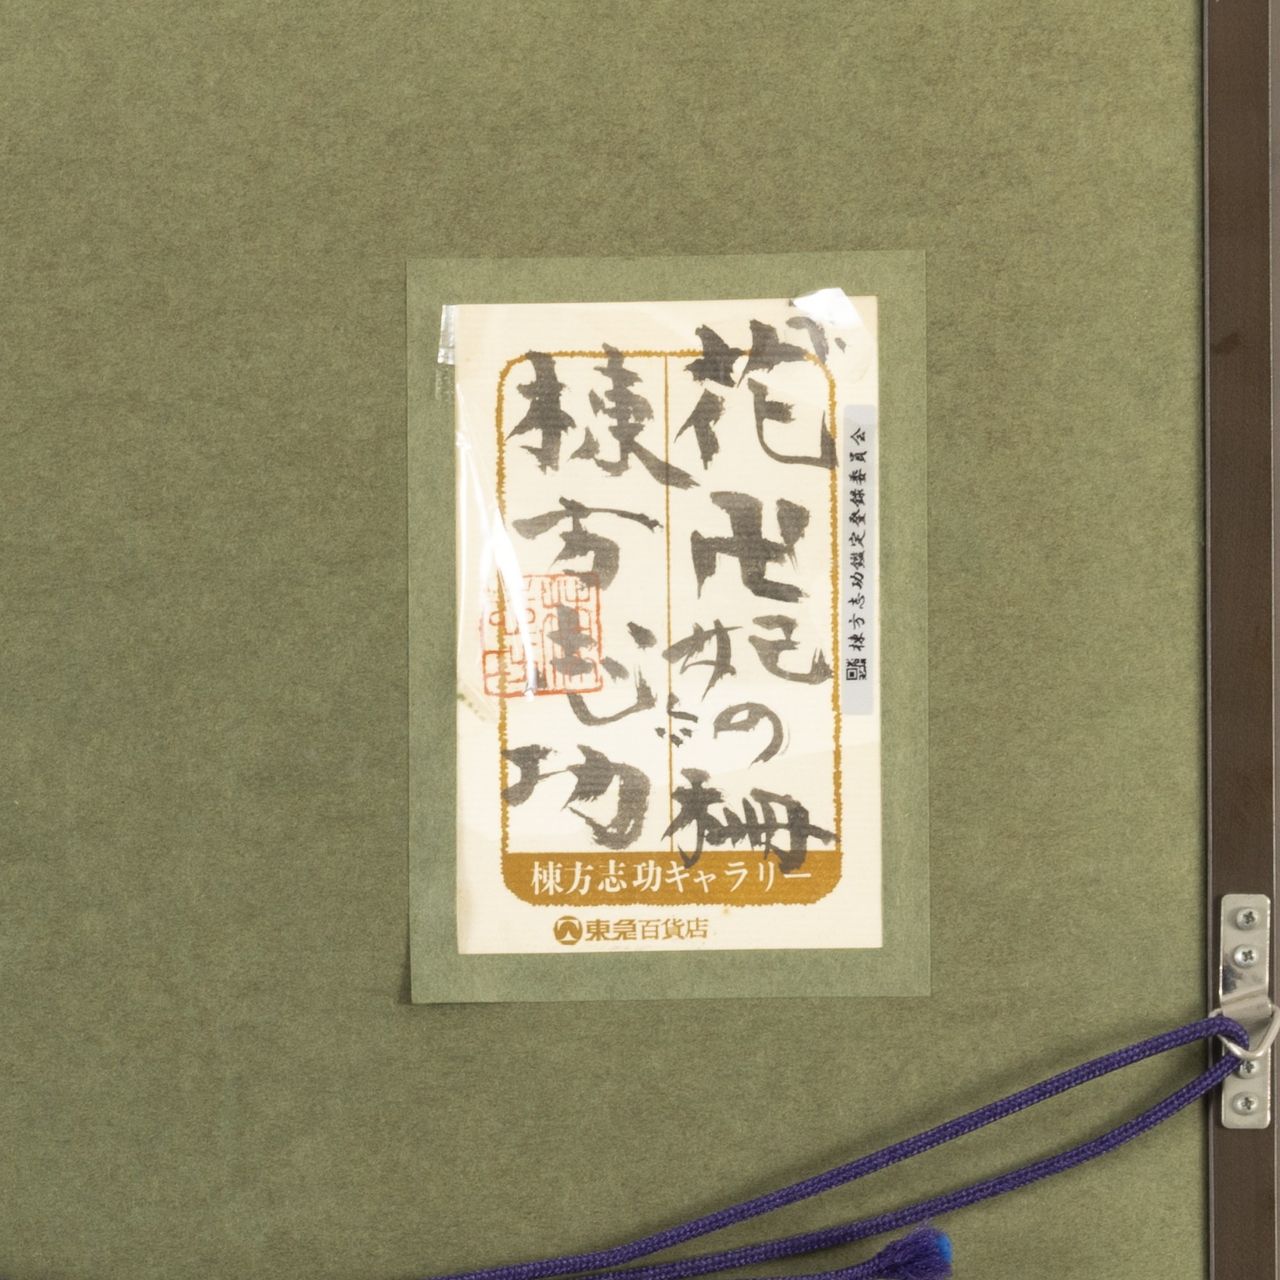 花卍妃の柵
棟方志功
棟方志功鑑定登録委員会
棟方志功キャラリー
東急百貨店